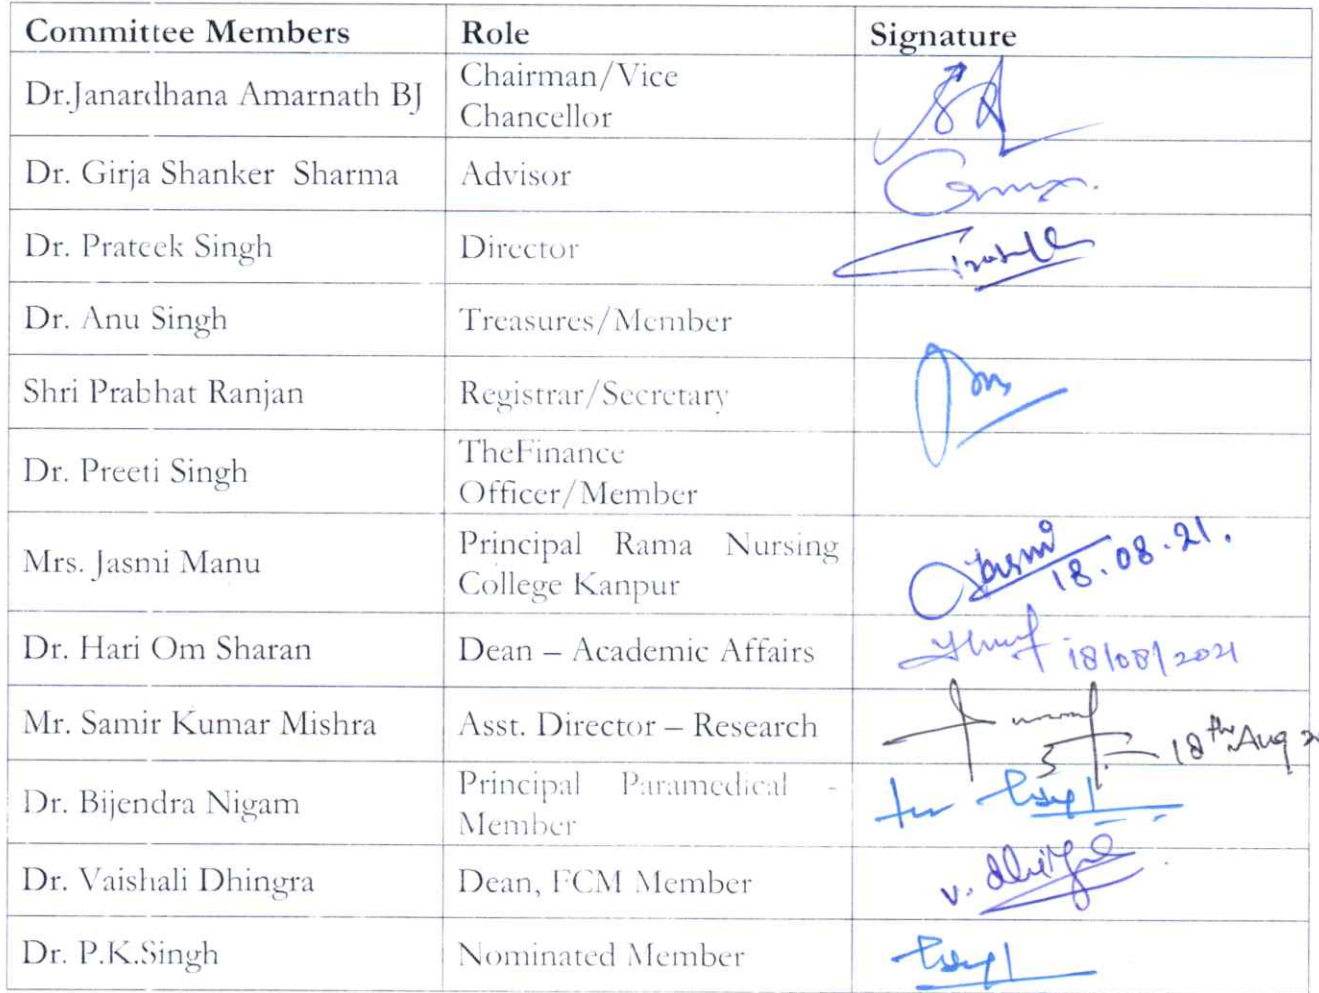 Committee Members Role Signature
Dr.Janardhana Amarnath BJ Chairman/Vice
Chancellor
Dr. Girja Shanker Sharma Advisor
Dr. Prateek Singh Director
Dr. Anu Singh Treasures/Member
Shri Prabhat Ranjan Registrar/Secretary
Dr. Preeti Singh TheFinance
Officer/Member
Mrs. Jasmi Manu Principal Rama Nursing
College Kanpur
Jasmi
18.08.21.
Dr. Hari Om Sharan Dean – Academic Affairs 18/08/2021
Mr. Samir Kumar Mishra Asst. Director – Research
18th Aug 2
Dr. Bijendra Nigam Principal Paramedical -
Member
Dr. Vaishali Dhingra Dean, FCM Member V. Dhingra
Dr. P.K.Singh Nominated Member